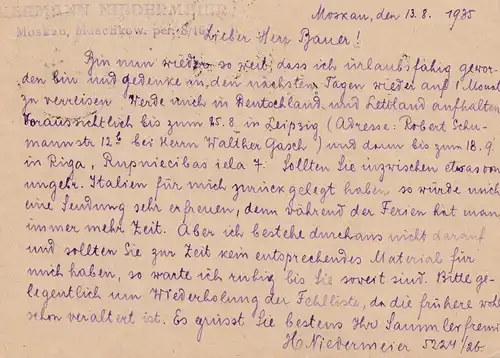 HERMANN NIEDERMEIER
Moskau, Maschkow. per. 8/10
Moskau, den 13.8. 1935
Lieber Herr Bauer!
Bin nun wieder so weit, dass ich urlaubsfähig gewor-
den bin und gedenke in den nächsten Tagen wieder auf 1 Monat
zu verreisen. Werde mich in Deutschland und Lettland aufhalten
Voraussichtlich bis zum 25.8. in Leipzig (Adresse: Robert Schu-
mannstr 12b bei Herrn Walther Gasch) und dann bis zum 18.9.
in Riga, Rupniecibas iela 7. Sollten Sie inzwischen etwas von
Ungarn. Italien für mich zurück gelegt haben so würde mich
eine Sendung sehr erfreuen, denn während der Ferien hat man
immer mehr Zeit. Aber ich bestehe durchaus nicht darauf
und sollten Sie zur Zeit kein entsprechendes Material für
mich haben, so warte ich ruhig bis Sie soweit sind. Bitte ge-
legentlich um Wiederholung der Fehlliste, da die frühere wohl
schon veraltert ist. Es grüsst Sie bestens Ihr Sammlerfreund
H. Niedermeier 5224/26